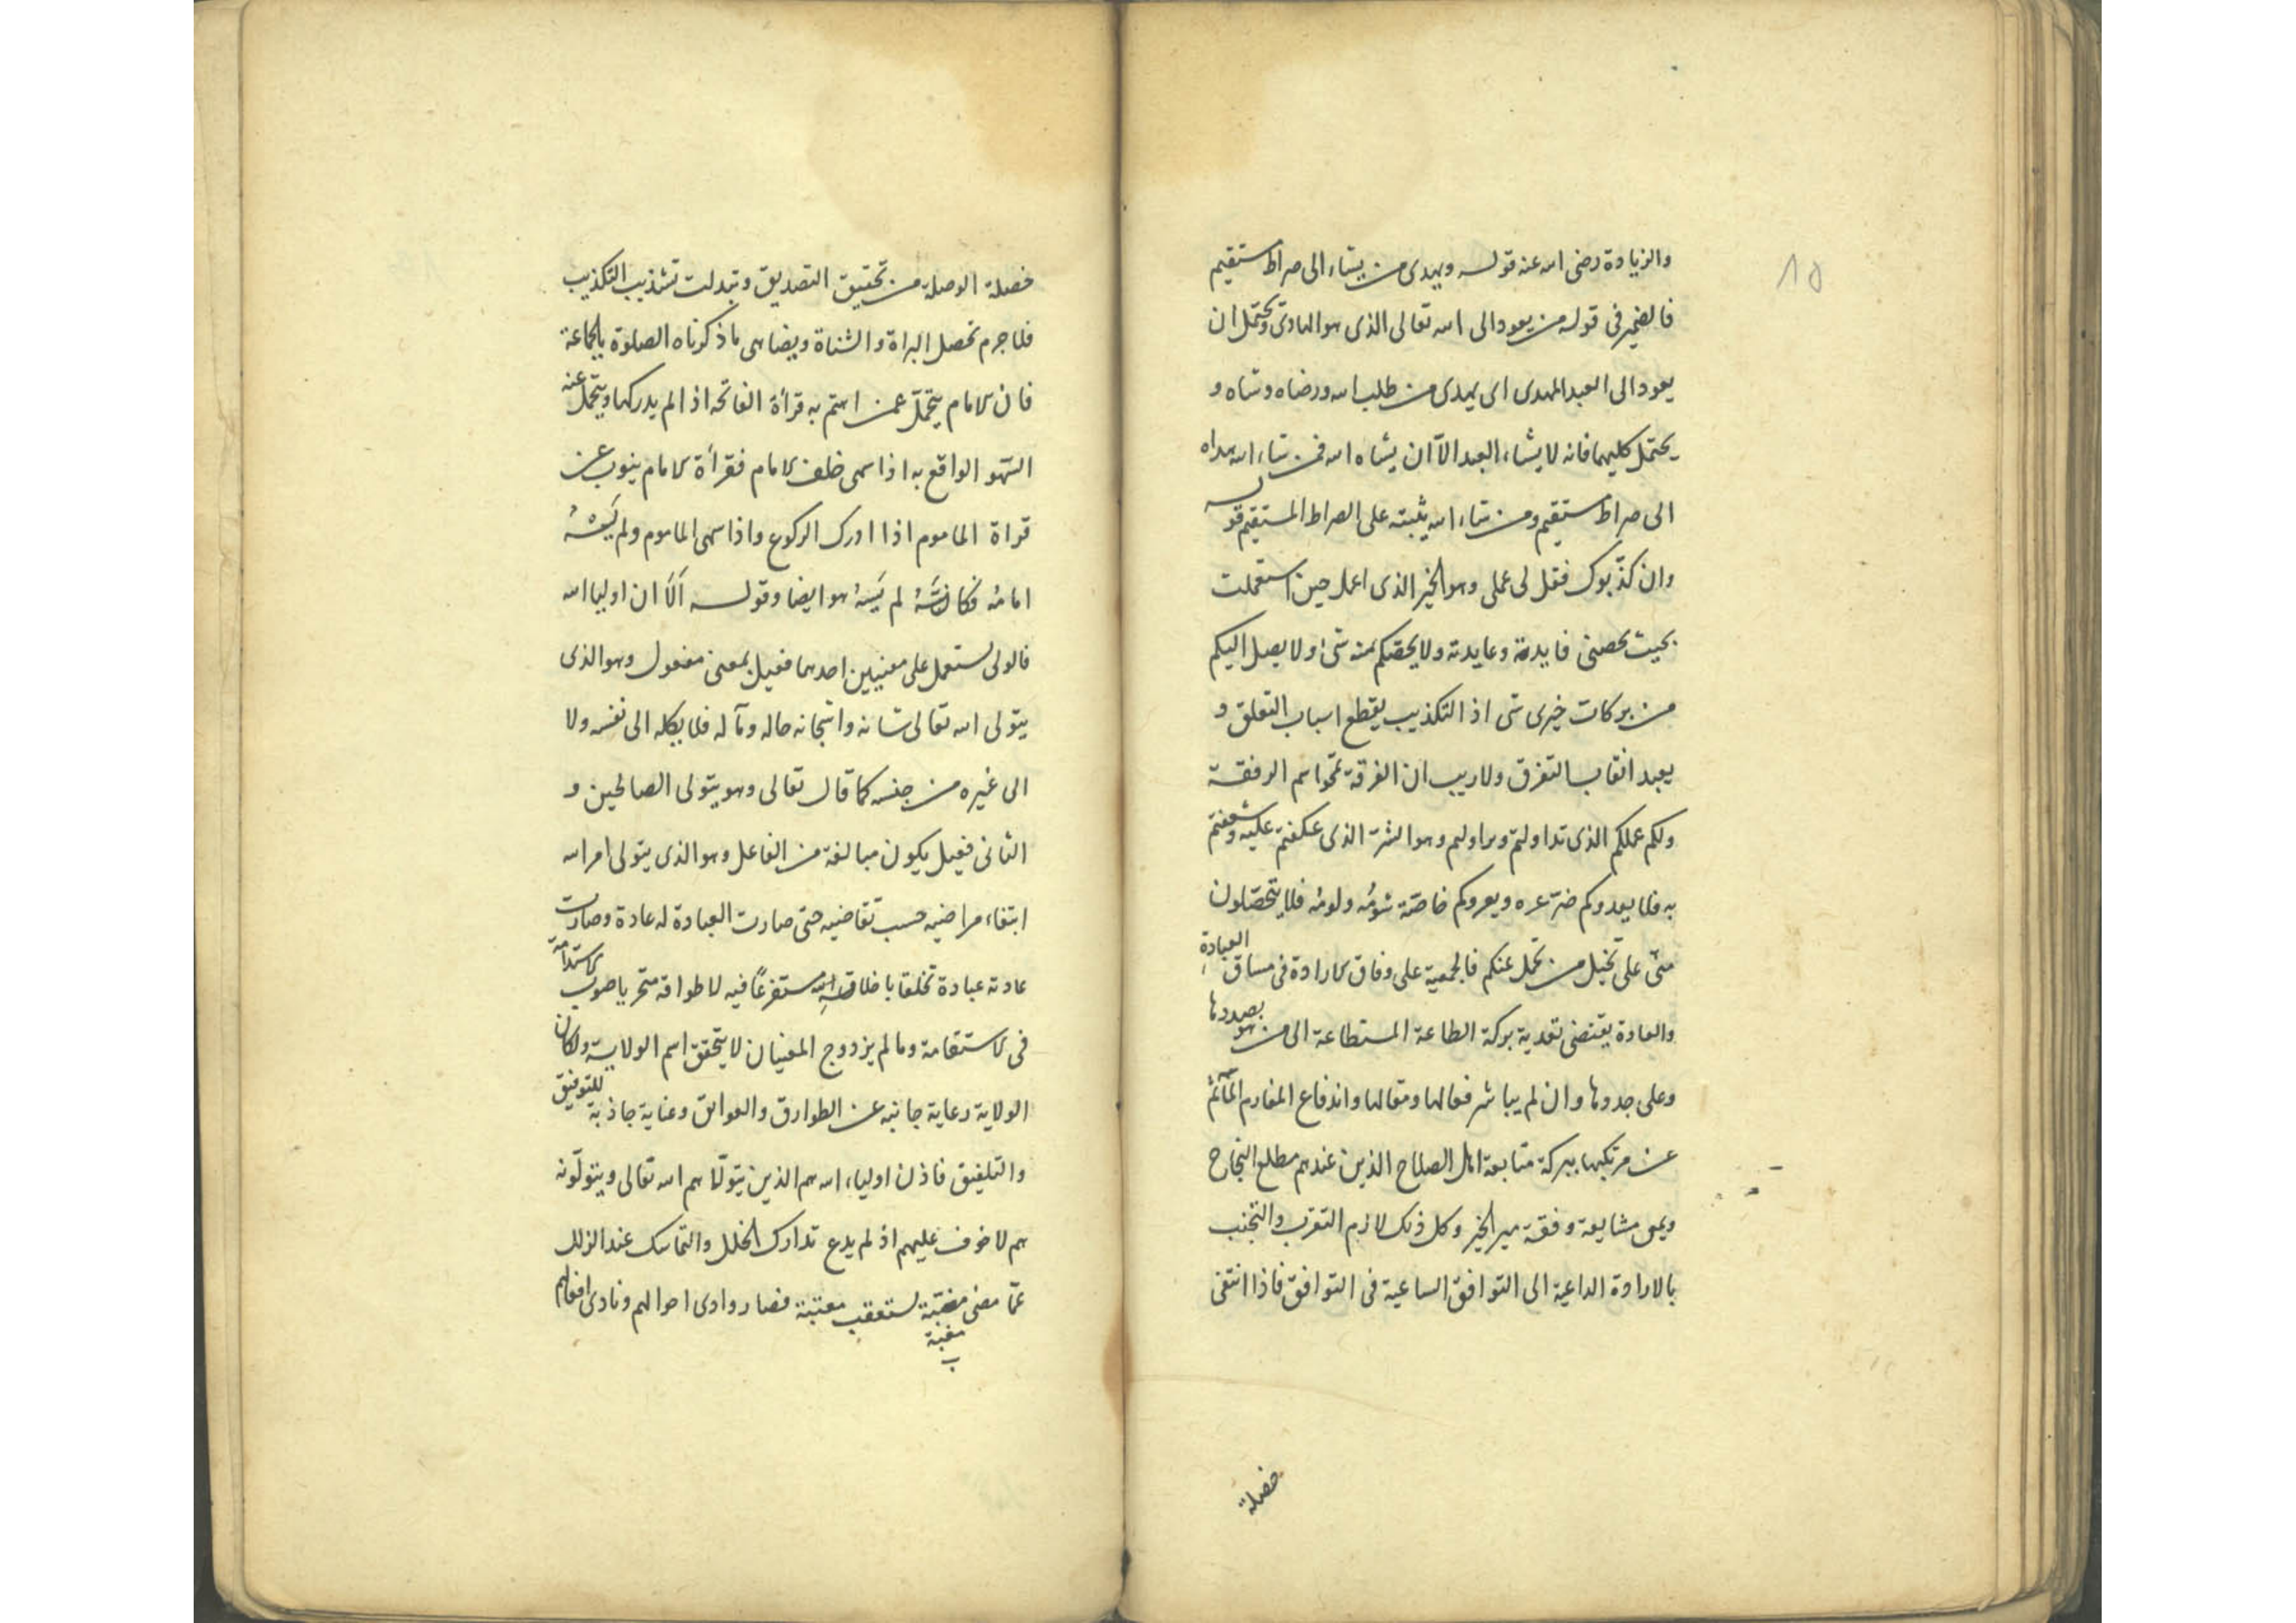 والزيادة رضى الله عنه قوله ويهدى من يشاء الى صراط مستقيم
فالضمير فى قوله من يعود الى الله تعالى الذى هو الهادى ويحتمل ان
يعود الى العبد المهدى اى يهدى من طلب الله ورضاه وشاه و
يحتمل كليهما فانه لا يشاء العبد الا ان يشاه الله فمن شاء الله هداه
الى صراط مستقيم ومن شاء الله يثبته على الصراط المستقيم قوله
وان كذّبوك فقل لى عملى وهو الخير الذى اعمل حين استعملت
بحيث يخصنى فايدته وعايدته ولا يخصّكم منه شئ ولا يصل اليكم
من بركات خيرى شى اذ التكذيب يقطع اسباب التعلق و
يعبد انقاب التفرق ولا ريب ان الفرقة تمحو اسم الرفقة
ولكم عملكم الذى تداولتم وهو الشر الذى عكفتم عليه وشغفتم
به فلا يعدوكم ضرّ عره ويعروكم خاصّة شومُه ولومُه فلا يتحصّلون
منّى على تخيل من تحمل عنكم فالجمعية على وفاق الارادة فى مساق العبادةِ
والعادة يقتضى تعدية بركة الطاعة المستطاعة الى من هو بصددها
وعلى جددها وان لم يباشر فعالها ومقالها واندفاع المغارم المآثم
عن مرتكبها ببركة متابعة اهل الصلاح الذين عندهم مطلع النجاح
ويمن مشايعة وفقة مير الخير وكل ذلك لازم التقرب والتجنب
بالارادة الداعية الى التوافق الساعية فى التوافق فاذا انتفى
خصلة
15
خصلة الوصلة من تحقيق التصديق وتبدلت تشذيب التكذيب
فلا جرم تحصل البراة والشناة ويضاهى ما ذكرناه الصلوة بالجماعة
فان الامام يتحمّل عمن ائتم به قرأة الفاتحه اذا لم يدركها ويتحمل عنه
السّهو الواقع به اذا سهى خلف الامام فقرأة الامام ينوب عن
قراة الماموم اذا ادرك الركوع واذا سهى الماموم ولم يَسْهُ
امامُه فكانّهُ لم يَسْهُ هو ايضا وقوله اَلَا ان اوليا الله
فالولى يستعمل على معنيين احدهما فعيل بمعنى مفعول وهو الذى
يتولى الله تعالى شانه وانتجانه حاله ومآله فلا يكله الى نفسه ولا
الى غيره من جنسه كما قال تعالى وهو يتولى الصالحين و
الثانى فعيل يكون مبالغة من الفاعل وهو الذى يتولى امر الله
ابتغاء مراضيه حسب تقاضيه حتى صارت العبادة له عادة وصارت
عادته عبادة تخلقا باخلاق الله مستفرغًا فيه لاطواقه متحريا صوب الاستدامة
فى الاستقامة وما لم يزدوج المعنيان لا يتحقق اسم الولاية ولكان
الولاية رعاية جانبه عن الطوارق والعوايق وعناية جاذبة للتوفيق
والتلفيق فاذن اولياء الله هم الذين يتولّاهم الله تعالى ويتولّونه
هم لا خوف عليهم اذ لم يدع تدارك الخلل والتماسك عند الزلل
عمّا مضى مغبّة تستعقب معتبة فصار وادى احوالهم ونادى افعالهم
مغبة
ب